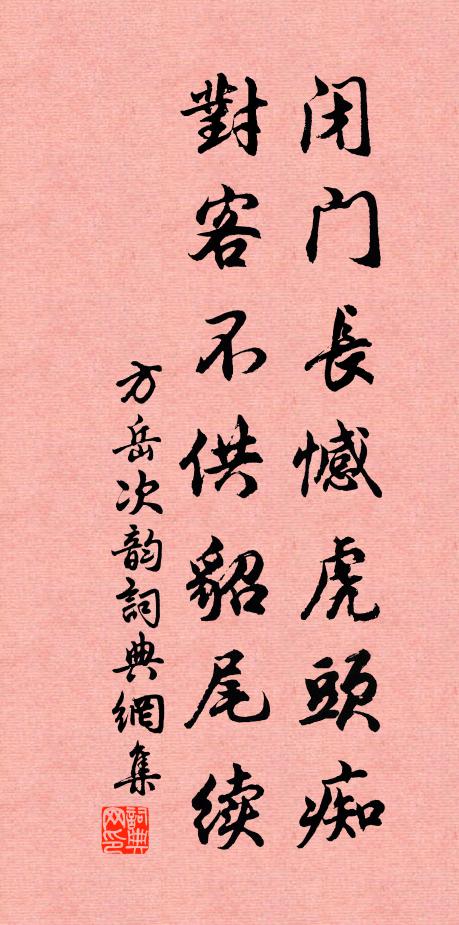 闭门長憾虎頭痴
對客不供貂尾续
方岳次韵詞典網集
詞典网印